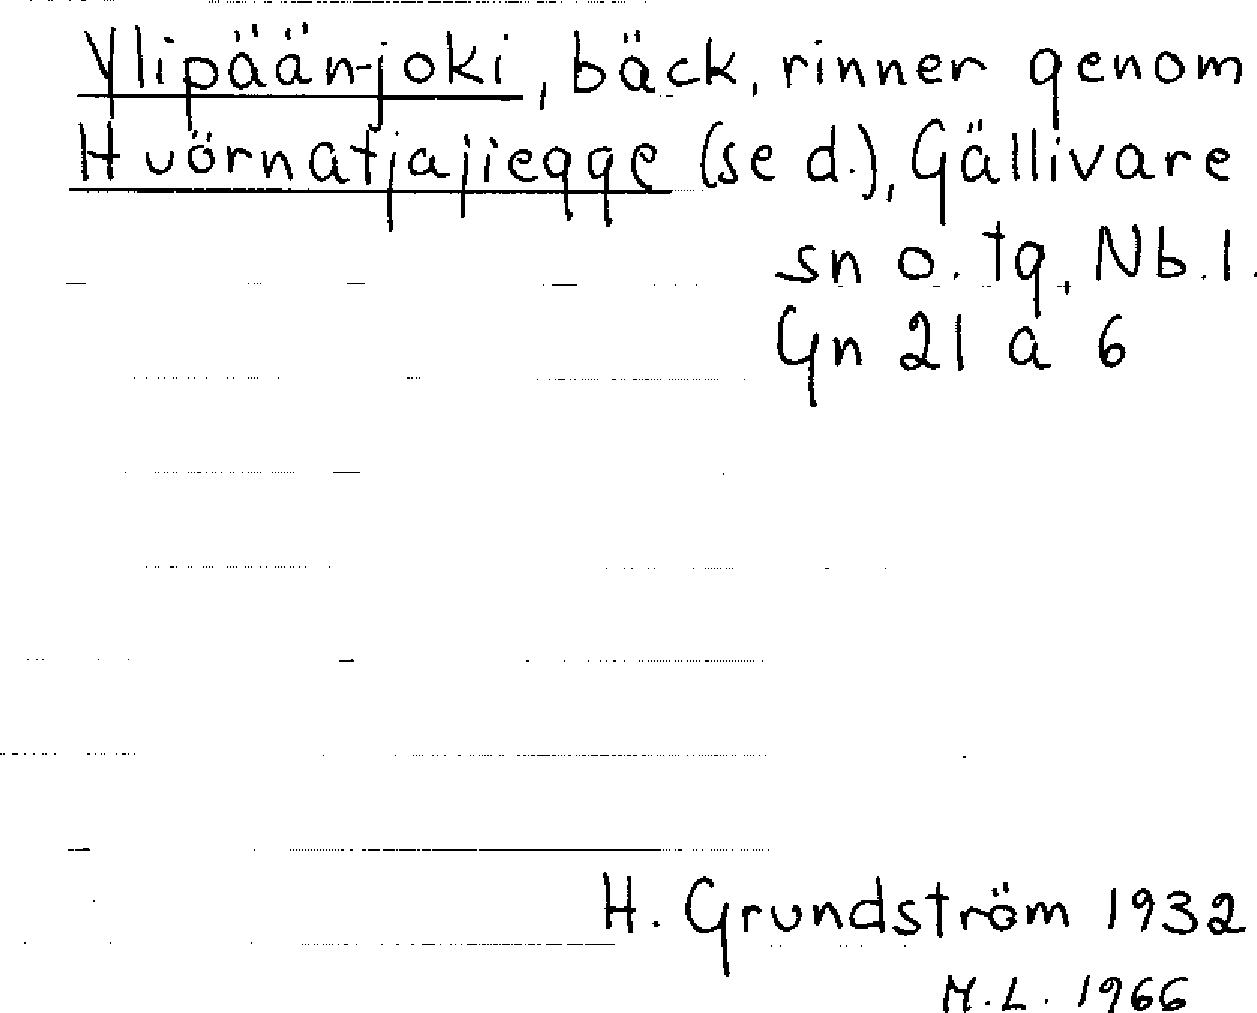 Ylipään-joki, bäck, rinner genom
Huörnatjajiegge (se d.), Gällivare
sn o. tg, Nb. l.
Gn 21 a 6
H. Grundström 1932
M.L. 1966